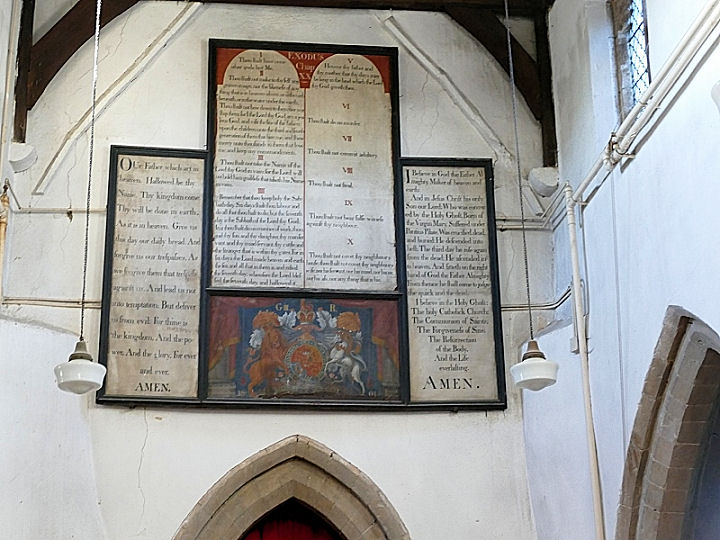 EXODUS
Chap
XX
I
Thou shalt have no
other gods but Me.
II
Thou shalt not make to thy self any
graven image, nor the likeness of any
thing that is in heaven above or in the earth
beneath, or in the water under the earth.
Thou shalt not bow down to them nor
worship them: for I the Lord thy God am a jea
lous God, and visit the sins of the fathers
upon the children unto the third and fourth
generation of them that hate me, and shew
mercy unto thousands in them that love
me, and keep my commandments.
III
Thou shalt not take the Name of the
Lord thy God in vain: for the Lord will
not hold him guiltless that taketh his Name
in vain.
IIII
Remember that thou keep holy the Sab-
bath day. Six days shalt thou labour and
do all that thou hast to do, but the seventh
day is the Sabbath of the Lord thy God.
thou shalt do no manner of work, thou
and thy son, and thy daughter, thy manser
vant, and thy maidservant, thy cattle and
the stranger that is within thy gates. For in
six days the Lord made heaven and earth
the sea, and all that in them is, and rested
the seventh day, wherefore the Lord bles
sed the seventh day, and hallowed it.
V
Honour thy father and
thy mother, that thy days may
be long in the land which the Lord
thy God giveth thee.
VI
Thou shalt do no murder.
VII
Thou shalt not commit adultery.
VIII
Thou shalt not steal.
IX
Thou shalt not bear false witness
against thy neighbour.
X
Thou shalt not covet thy neighbour's
house, thou shalt not covet thy neighbour's
wife nor his servant nor his maid, nor his ox
nor his ass, nor any thing that is his.
Our Father which art in
heaven. Hallowed be thy
Name. Thy kingdom come
Thy will be done in earth,
As it is in heaven. Give us
this day our daily bread. And
forgive us our trespasses, As
we forgive them that trespass
against us. And lead us not
into temptation: But deliver
us from evil: For thine is
the kingdom, And the po-
wer, And the glory, For ever
and ever.
AMEN.
I Believe in God the Father Al
mighty Maker of heaven and
earth:
And in Jesus Christ his only
Son our Lord; Who was conceived
by the Holy Ghost, Born of
the Virgin Mary, Suffered under
Pontius Pilate, Was crucified, dead,
and buried: He descended into
hell; The third day he rose again
from the dead; He ascended in
to heaven, And sitteth on the right
hand of God the Father Almighty;
From thence he shall come to judge
the quick and the dead.
I believe in the Holy Ghost;
The holy Catholick Church;
The Communion of Saints;
The Forgiveness of Sins;
The Resurrection
of the Body,
And the Life
everlasting.
AMEN.
G R